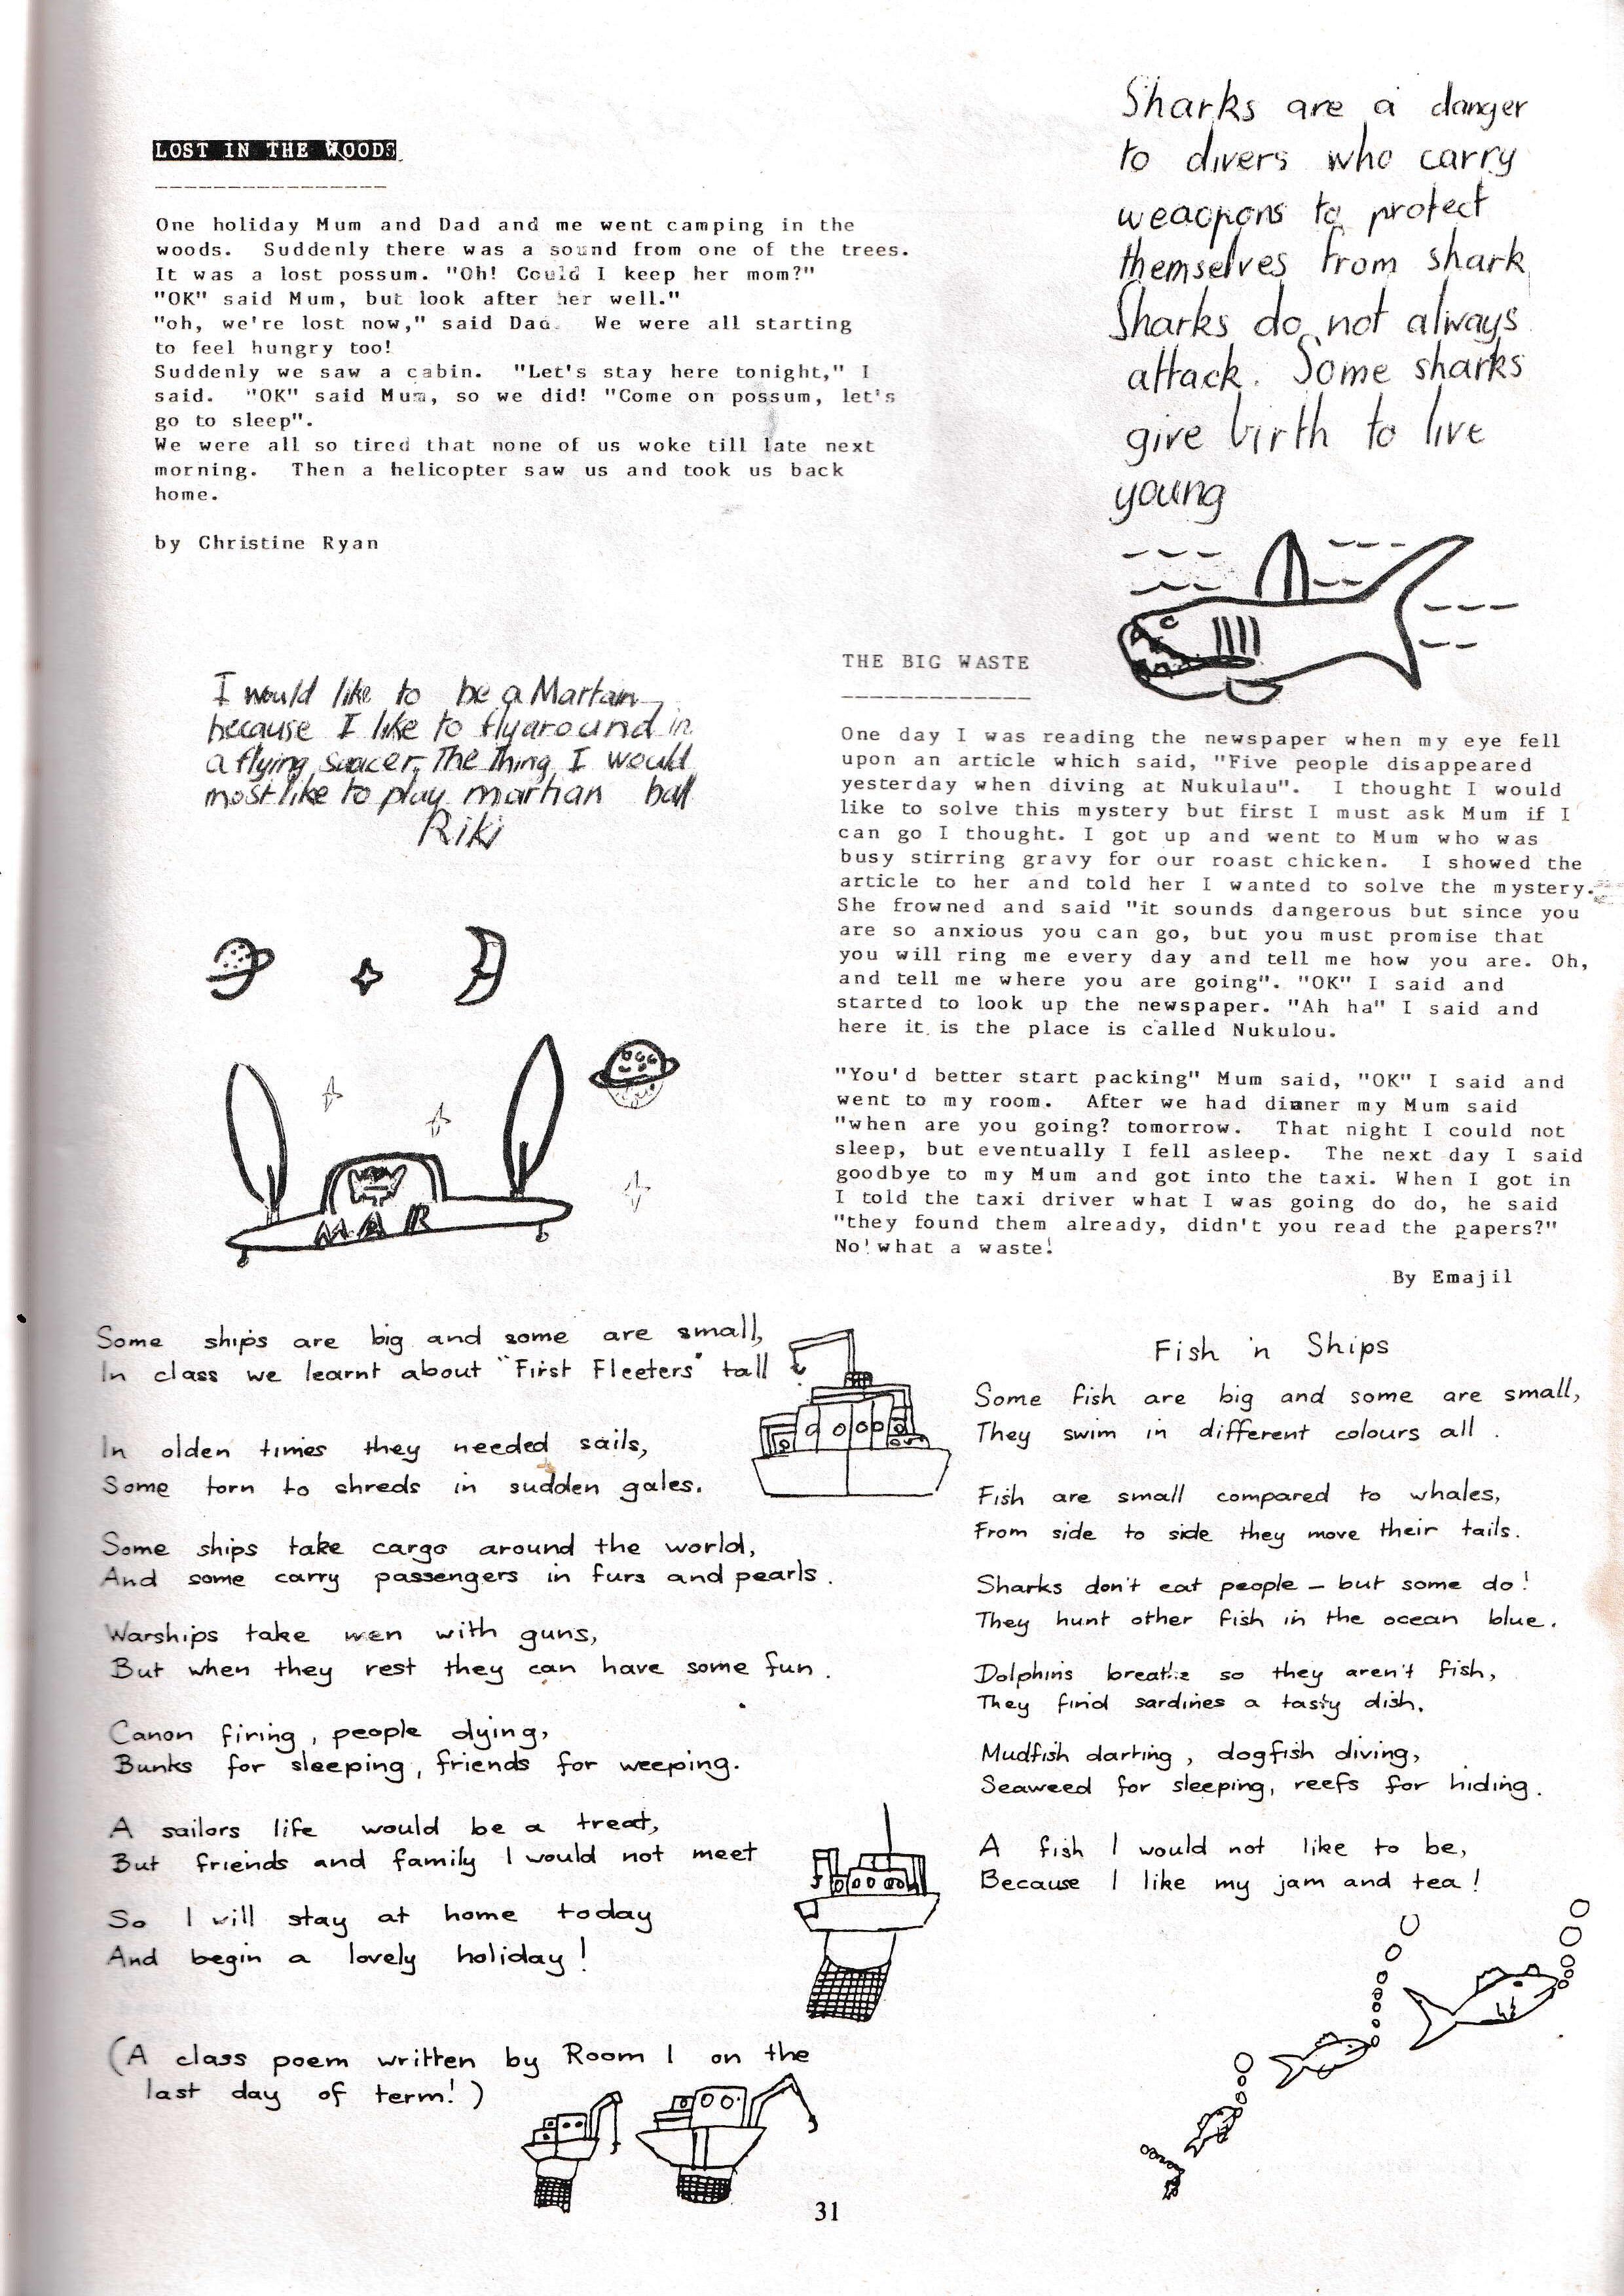 LOST IN THE WOODS
One holiday Mum and Dad and me went camping in the
woods. Suddenly there was a sound from one of the trees.
It was a lost possum. "Oh! Could I keep her mom?"
"OK" said Mum, but look after her well."
"oh, we're lost now," said Dad. We were all starting
to feel hungry too!
Suddenly we saw a cabin. "Let's stay here tonight," I
said. "OK" said Mum, so we did! "Come on possum, let's
go to sleep".
We were all so tired that none of us woke till late next
morning. Then a helicopter saw us and took us back
home.
by Christine Ryan
Sharks are a danger
to divers who carry
weacpons to protect
themselves from shark
Sharks do not always
attack. Some sharks
give birth to live
young
I would like to be a Martain
because I like to fly around in
a flying suacer. The Thing I would
most like to play martian ball
Riki
MAR
THE BIG WASTE
One day I was reading the newspaper when my eye fell
upon an article which said, "Five people disappeared
yesterday when diving at Nukulau". I thought I would
like to solve this mystery but first I must ask Mum if I
can go I thought. I got up and went to Mum who was
busy stirring gravy for our roast chicken. I showed the
article to her and told her I wanted to solve the mystery.
She frowned and said "it sounds dangerous but since you
are so anxious you can go, but you must promise that
you will ring me every day and tell me how you are. Oh,
and tell me where you are going". "OK" I said and
started to look up the newspaper. "Ah ha" I said and
here it is the place is called Nukulou.
"You'd better start packing" Mum said, "OK" I said and
went to my room. After we had dinner my Mum said
"when are you going? tomorrow. That night I could not
sleep, but eventually I fell asleep. The next day I said
goodbye to my Mum and got into the taxi. When I got in
I told the taxi driver what I was going do do, he said
"they found them already, didn't you read the papers?"
No! what a waste!
By Emajil
Some ships are big and some are small,
In class we learnt about "First Fleeters" tall
In olden times they needed sails,
Some torn to shreds in sudden gales.
Some ships take cargo around the world,
And some carry passengers in furs and pearls.
Warships take men with guns,
But when they rest they can have some fun.
Canon firing, people dying,
Bunks for sleeping, friends for weeping.
A sailors life would be a treat,
But friends and family I would not meet
So I will stay at home today
And begin a lovely holiday!
(A class poem written by Room 1 on the
last day of term!)
Fish 'n Ships
Some fish are big and some are small,
They swim in different colours all.
Fish are small compared to whales,
From side to side they move their tails.
Sharks don't eat people - but some do!
They hunt other fish in the ocean blue.
Dolphins breathe so they aren't fish,
They find sardines a tasty dish.
Mudfish darting, dogfish diving,
Seaweed for sleeping, reefs for hiding.
A fish I would not like to be,
Because I like my jam and tea!
31